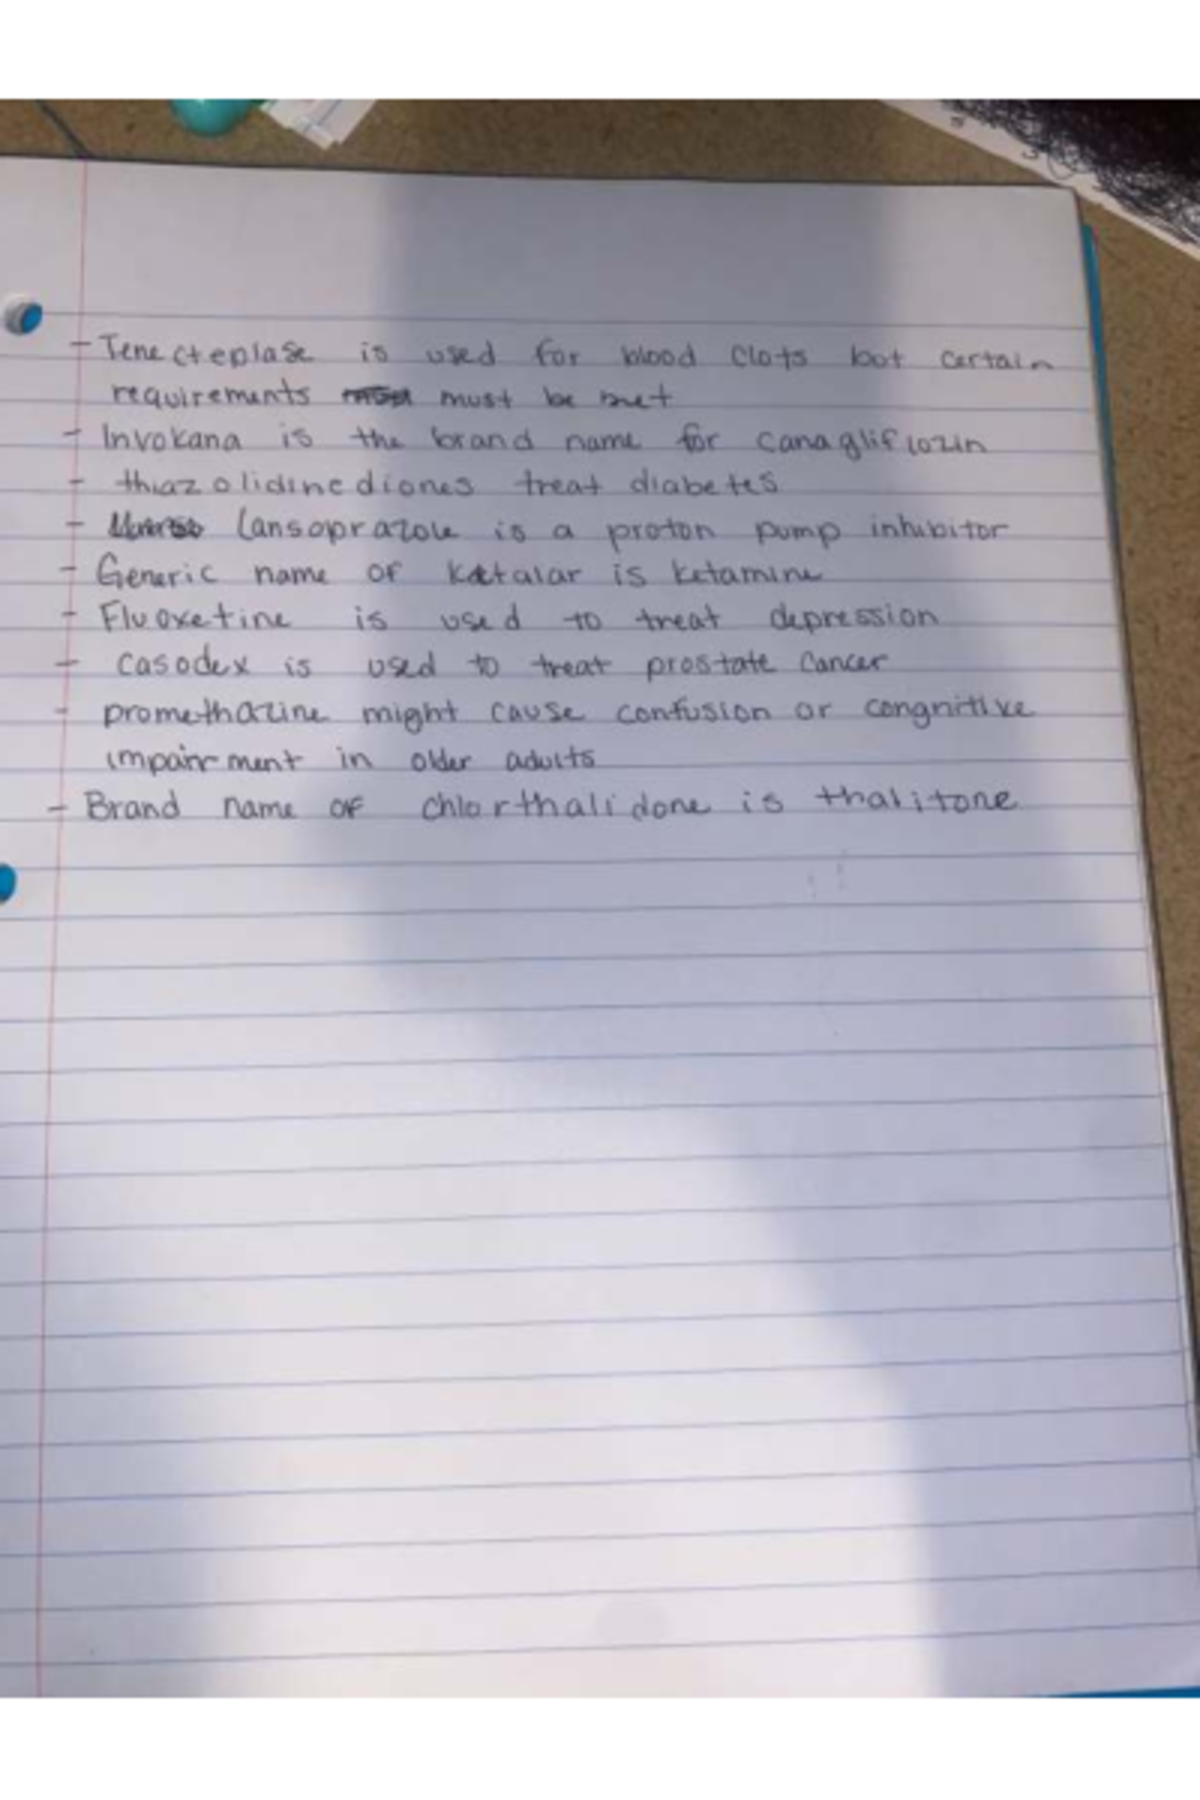 - Tenecteplase is used for blood clots but certain
requirements must be met
- Invokana is the brand name for canagliflozin
- thiazolidinediones treat diabetes
- lansoprazole is a proton pump inhibitor
- Generic name of Ketalar is ketamine
- Fluoxetine is used to treat depression
- Casodex is used to treat prostate cancer
- promethazine might cause confusion or congnitive
impairment in older adults
- Brand name of chlorthalidone is thalitone